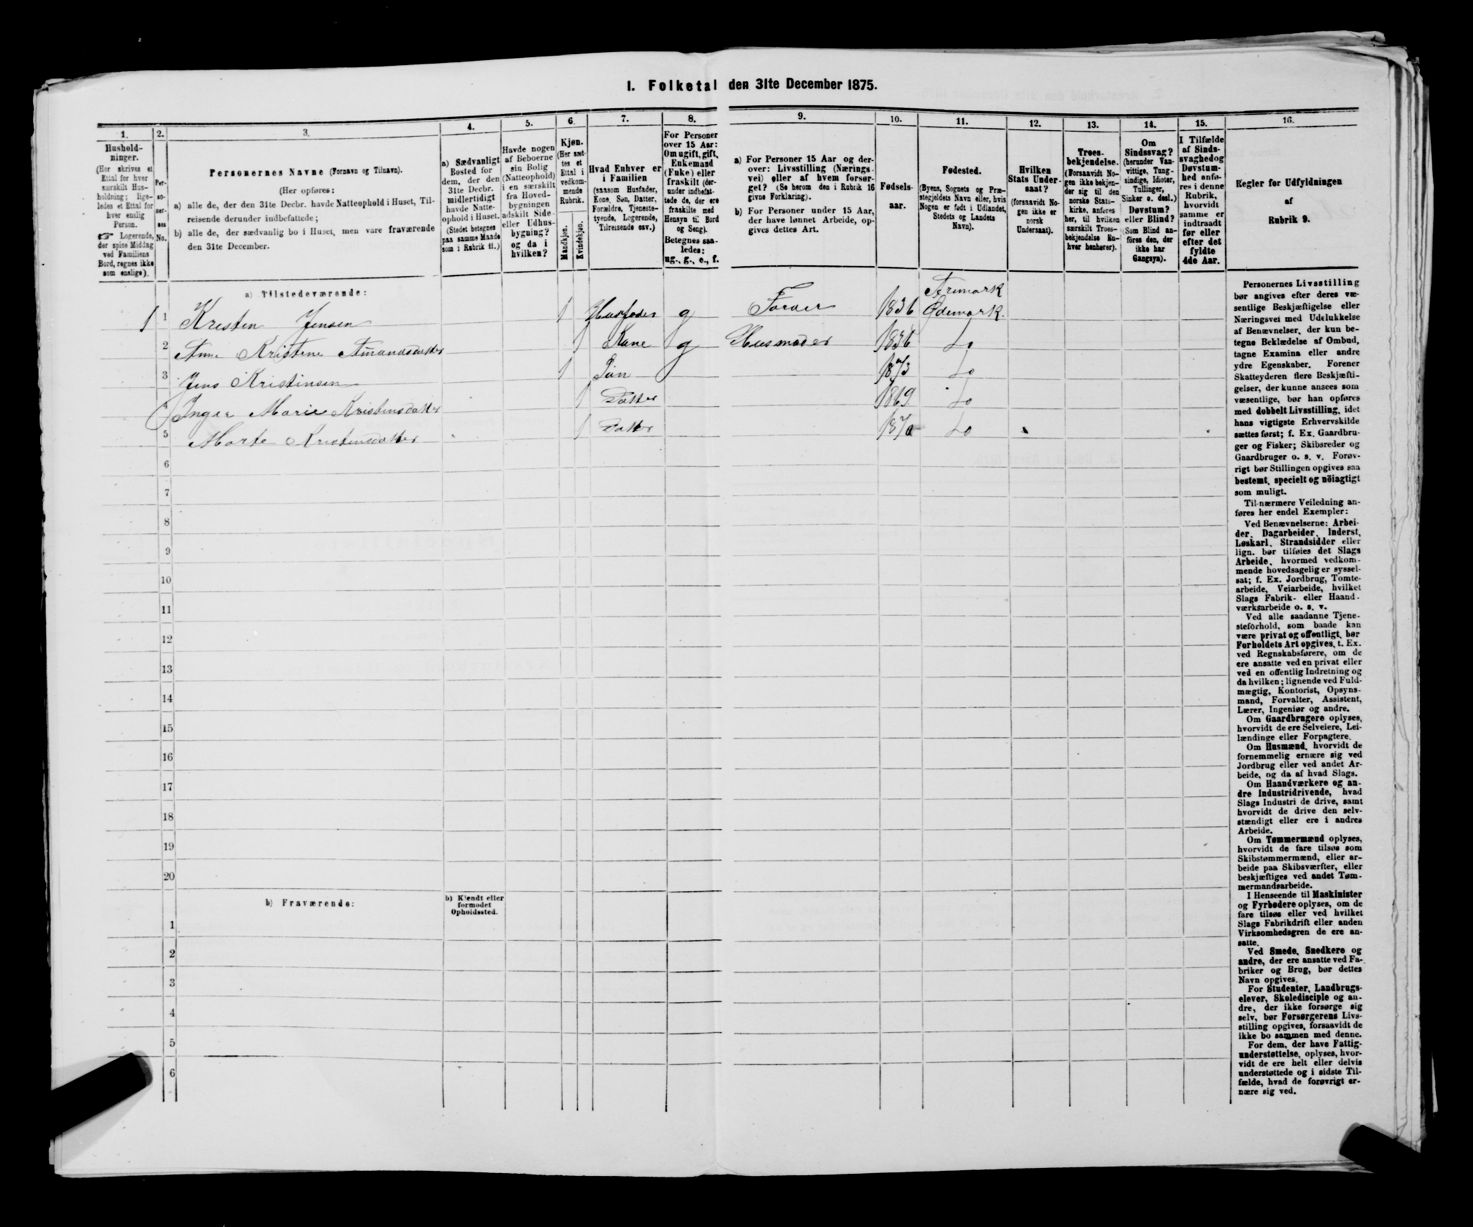 I. Folketal den 31te December 1875.
1.
Hushold-
ninger.
(Her skrives et
Ettal for hver
særskilt Hus-
holdning; lige-
ledes et Ettal for
hver enslig
Person.
☞ Logerende,
der spise Middag
ved Familiens
Bord, regnes ikke
som enslige).
2.
Per-
so-
ner-
nes
No.
3.
Personernes Navne (Fornavn og Tilnavn).
(Her opføres:
a) alle de, der den 31te Decbr. havde Natteophold i Huset, Til-
reisende derunder indbefattede;
b) alle de, der sædvanlig bo i Huset, men vare fraværende
den 31te December.
4.
a) Sædvanligt
Bosted for
dem, der den
31te Decbr.
midlertidigt
havde Natte-
ophold i Huset.
(Stedet betegnes
paa samme Maade
som i Rubrik 11.)
5.
Havde nogen
af Beboerne
sin Bolig
(Natteophold)
i en særskilt
fra Hoved-
bygningen
adskilt Side-
eller Udhus-
bygning?
og da i
hvilken?
6.
Kjøn.
(Her sæt-
tes et
Ettal i
vedkom-
mende
Rubrik.
Mandkjøn.
Kvindekjøn.
7.
Hvad Enhver er
i Familien
(saasom Husfader,
Kone, Søn, Datter,
Forældre, Tjeneste-
tyende, Logerende,
Tilreisende osv.)
8.
For Personer
over 15 Aar:
Om ugift, gift,
Enkemand
(Enke) eller
fraskilt (der-
under indbefat-
tede de, der ere
fraskilte med
Hensyn til Bord
og Seng).
Betegnes saa-
ledes:
ug., g., e., f.
9.
a) For Personer 15 Aar og der-
over: Livsstilling (Nærings-
vei) eller af hvem forsør-
get? (Se herom den i Rubrik 16
givne Forklaring).
b) For Personer under 15 Aar,
der have lønnet Arbeide, op-
gives dettes Art.
10.
Fødsels-
aar.
11.
Fødested.
(Byens, Sognets og Præ-
stegjeldets Navn eller, hvis
Nogen er født i Udlandet,
Stedets og Landets
Navn).
12.
Hvilken
Stats Under-
saat?
(forsaavidt No-
gen ikke er
norsk
Undersaat).
13.
Troes-
bekjendelse.
(Forsaavidt No-
gen ikke bekjen-
der sig til den
norske Stats-
kirke, anføres
her, til hvilken
særskilt Troes-
bekjendelse En-
hver henhører).
14.
Om
Sindssvag?
(herunder Van-
vittige, Tung-
sindige, Idioter,
Tullinger,
Sinker o. desl.)
Døvstum?
eller Blind?
(Som Blind an-
føres den, der
ikke har
Gangsyn).
15.
I Tilfælde
af Sinds-
svaghed og
Døvstum-
hed anfø-
res i denne
Rubrik,
hvorvidt
samme er
indtraadt
før eller
efter det
fyldte
4de Aar.
16.
Regler for Udfyldningen
af
Rubrik 9.
a) Tilstedeværende:
1 1 Kresten Jensen 1 Husfader g Forær 1836 Aremark Ødemark
2 Anne Kristine Amundsdatter 1 Kone g Husmoder 1836 do
3 Jens Kristinsen 1 Søn 1873 do
Inger Marie Kristinsdatter 1 Datter 1869 do
5 Marte Kristinsdatter 1 Datter 1870 do
6
7
8
9
10
11
12
13
14
15
16
17
18
19
20
b) Fraværende:
b) Kjendt eller
formodet
Opholdssted.
1
2
3
4
5
6
Personernes Livsstilling
bør angives efter deres væ-
sentlige Beskjæftigelse eller
Næringsvei med Udelukkelse
af Benævnelser, der kun be-
tegne Beklædelse af Ombud,
tagne Examina eller andre
ydre Egenskaber. Forener
Skatteyderen flere Beskjæfti-
gelser, der kunne ansees som
væsentlige, bør han opføres
med dobbelt Livsstilling, idet
hans vigtigste Erhvervskilde
sættes først; f. Ex. Gaardbru-
ger og Fisker; Skibsreder og
Gaardbruger o. s. v. Forøv-
rigt bør Stillingen opgives saa
bestemt, specielt og nøiagtigt
som muligt.
Til nærmere Veiledning an-
føres her endel Exempler:
Ved Benævnelserne: Arbei-
der, Dagarbeider, Inderst,
Løskarl, Strandsidder eller
lign. bør tilføies det Slags
Arbeide, hvormed vedkom-
mende hovedsagelig er syssel-
sat; f. Ex. Jordbrug, Tomte-
arbeide, Veiarbeide, hvilket
Slags Fabrik- eller Haand-
værksarbeide o. s. v.
Ved alle saadanne Tjene-
steforhold, som baade kan
være privat og offentligt, bør
Forholdets Art opgives, t. Ex.
ved Regnskabsførere, om de
ere ansatte ved en privat eller
ved en offentlig Indretning og
da hvilken; lignende ved Fuld-
mægtig, Kontorist, Opsyns-
mand, Forvalter, Assistent,
Lærer, Ingeniør og andre.
Om Gaardbrugere oplyses,
hvorvidt de ere Selveiere, Lei-
lændinge eller Forpagtere.
Om Husmænd, hvorvidt de
fornemmelig ernære sig ved
Jordbrug eller ved andet Ar-
beide, og da af hvad Slags.
Om Haandværkere og an-
dre Industridrivende, hvad
Slags Industri de drive, samt
hvorvidt de drive den selv-
stændigt eller ere i andres
Arbeide.
Om Tømmermænd oplyses,
hvorvidt de fare tilsøs som
Skibstømmermænd, eller ar-
beide paa Skibsværfter, eller
beskjæftiges ved andet Tøm-
mermandsarbeide.
I Henseende til Maskinister
og Fyrbødere oplyses, om de
fare tilsøs eller ved hvilket
Slags Fabrikdrift eller anden
Virksomhedsgren de ere an-
satte.
Ved Smede, Snedkere og
andre, der ere ansatte ved Fa-
briker og Brug, bør dettes
Navn opgives.
For Studenter, Landbrugs-
elever, Skoledisciple og an-
dre, der ikke forsørge sig
selv, bør Forsørgerens Livs-
stilling opgives, forsaavidt de
ikke bo sammen med denne.
For dem, der have Fattig-
understøttelse, oplyses, hvor-
vidt de ere helt eller delvis
understøttede og i sidste Til-
fælde, hvad de forøvrigt er-
nære sig ved.